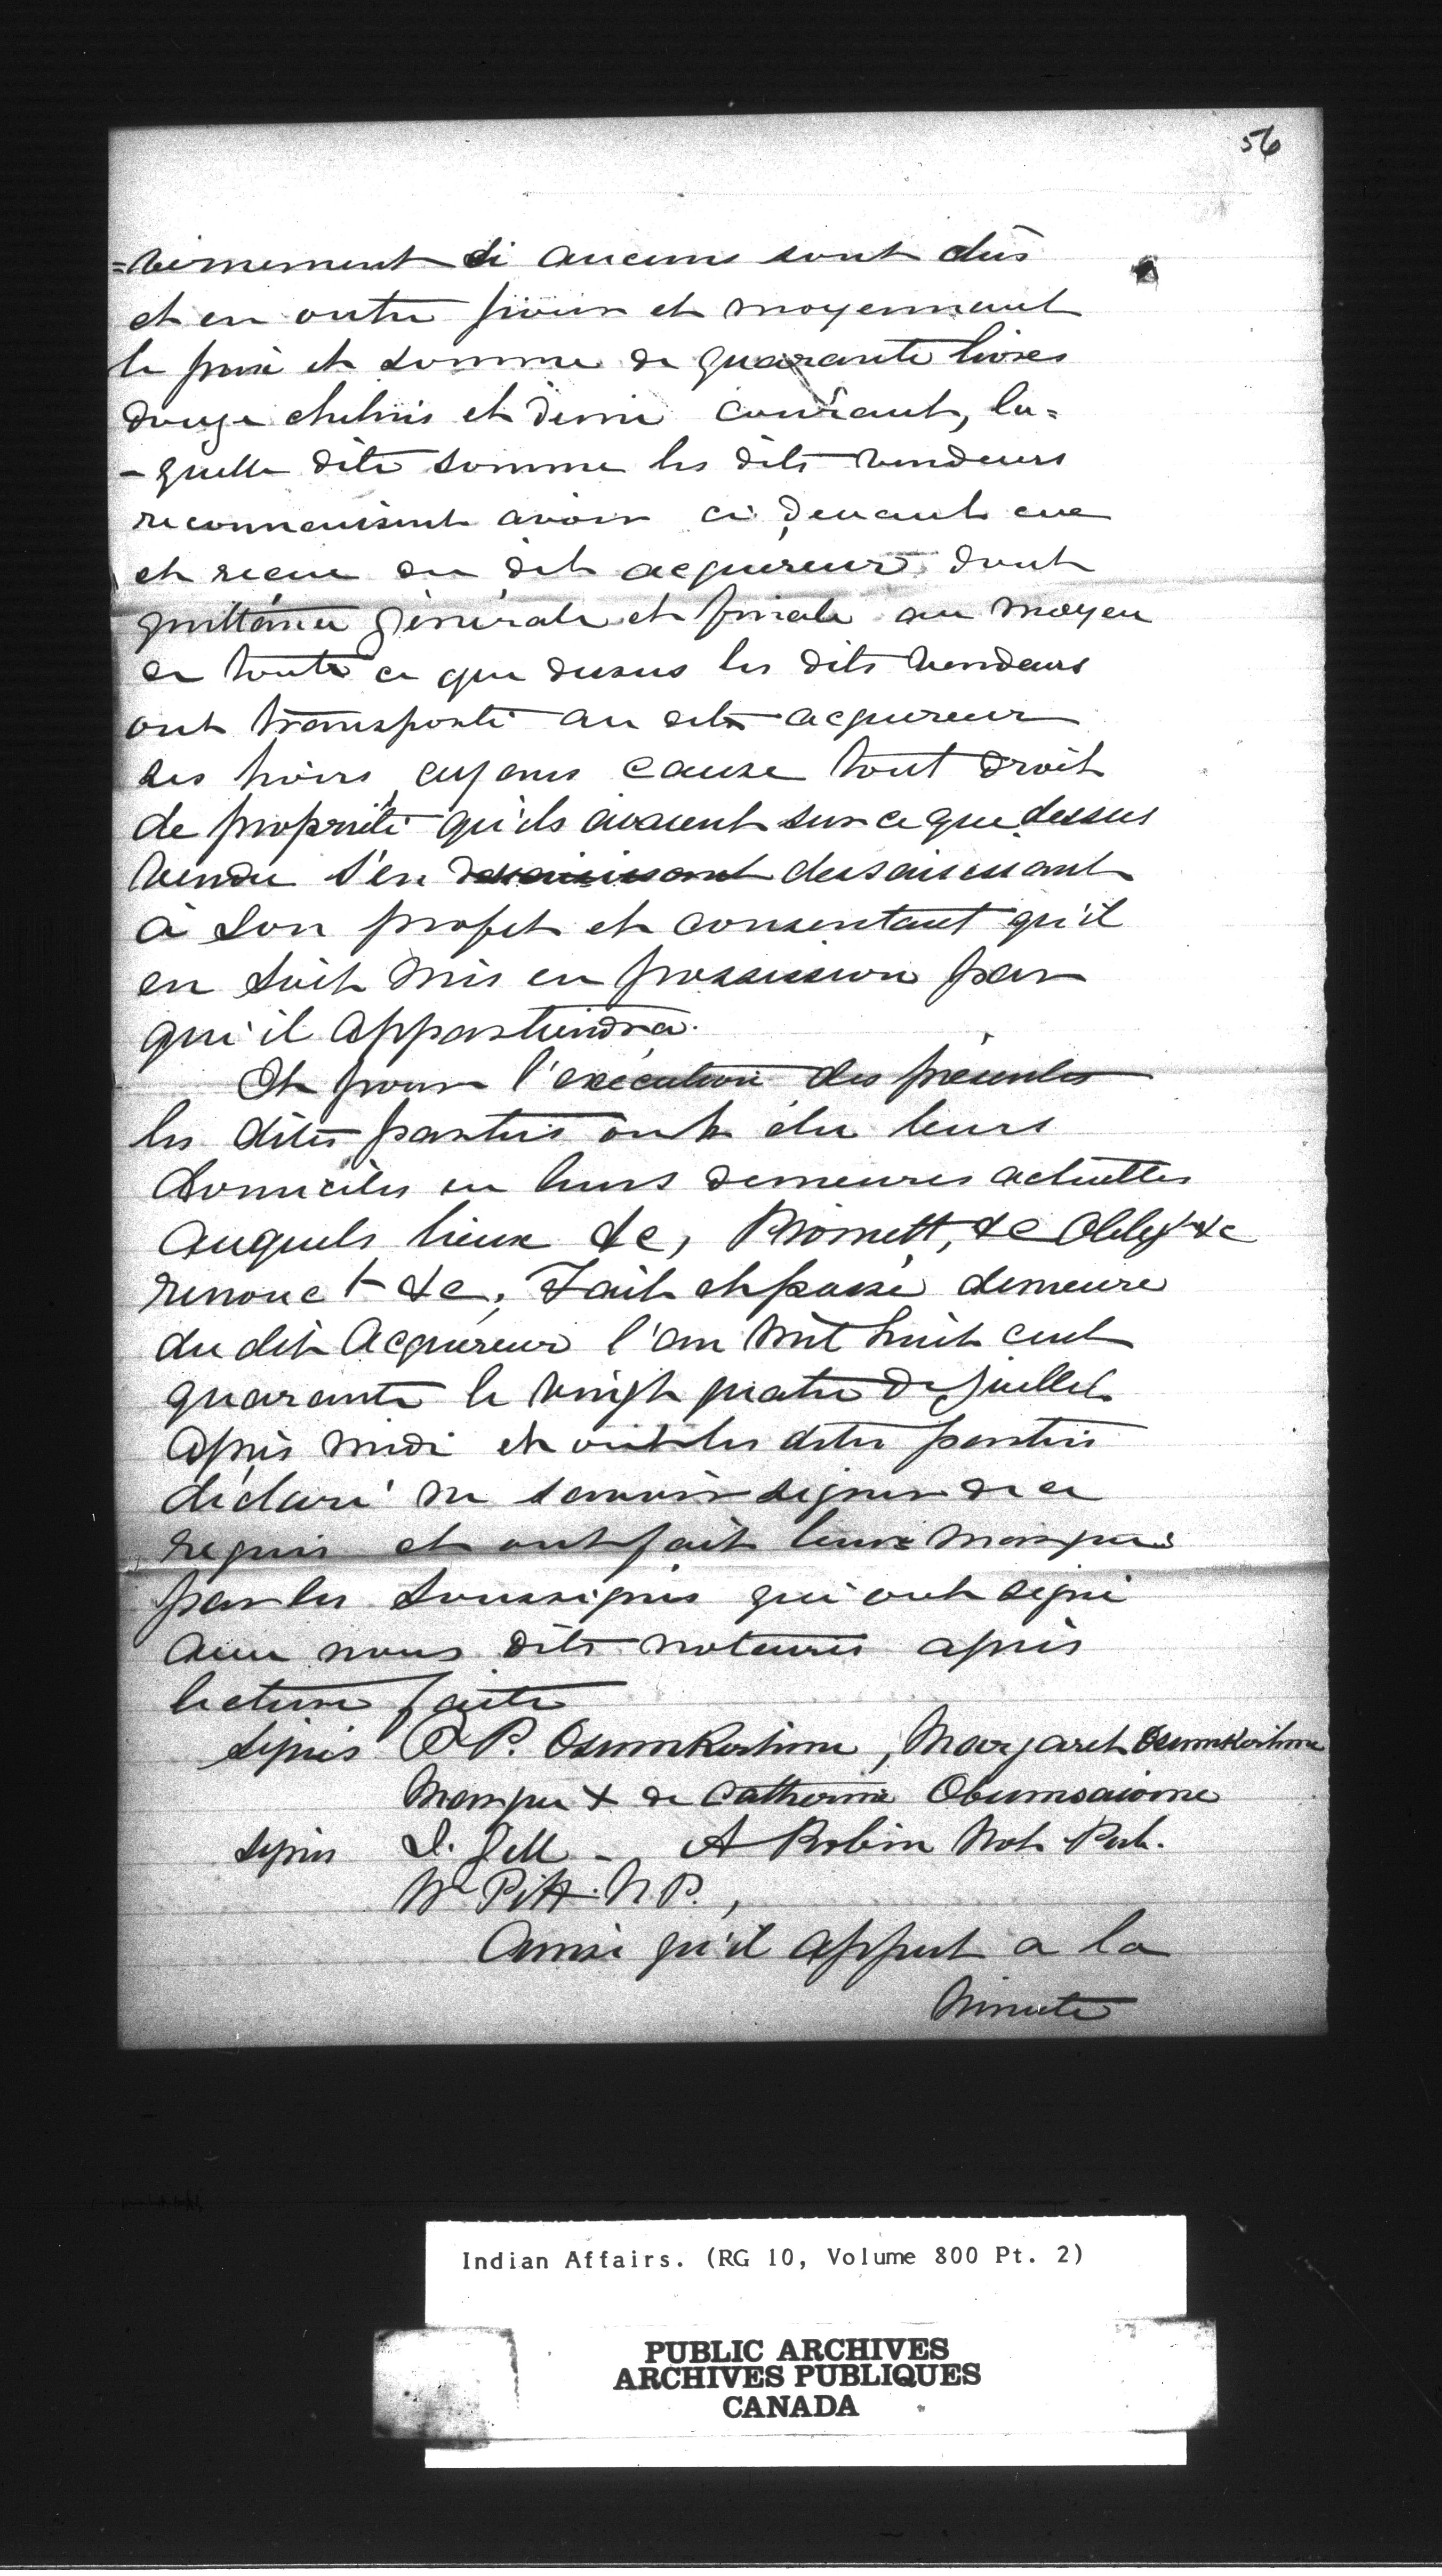 56
=vernement si aucuns sont dûs
et en outre pour et moyennant
le prix et somme de quarante livres
douze chelins et demi courant, la=
-quelle dite somme les dits vendeurs
reconnaissent avoir ci devant eue
et reçue du dit acquéreur dont
quittance générale et finale au moyen
de toute ce que dessus les dits vendeurs
ont transporté au dit acquereur
ses hoirs, ayans cause tout droit
de propriété qu'ils avaient sur ce que dessus
vendu s'en dessaisissant
à son profit et consentant qu'il
en soit mis en possession par
qui il appartiendra.
Et pour l'exécution des présentes
les dites parties ont élu leurs
domiciles en leurs demeures actuelles
auquels lieux &c, Promett, &c Oblig't &c
renonc t &c, Fait et passé demeure
du dit Acquéreur l'an mil huit cent
quarante le vingt quatre de juillet
après midi et ont les dites parties
déclaré ne savoir signer de ce
requis et ont fait leurs marques
par les soussignés qui ont signé
avec nous dits notaires après
lecture faite
signés P. Osumkertime, Margaret Osumkertime
Marque + de Catherine Obumsawine
signés I. Gill - A Robin Not. Pub.
W Pitt. N.P.,
Ainsi qu'il appert a la
minute
Indian Affairs. (RG 10, Volume 800 Pt. 2)
PUBLIC ARCHIVES
ARCHIVES PUBLIQUES
CANADA